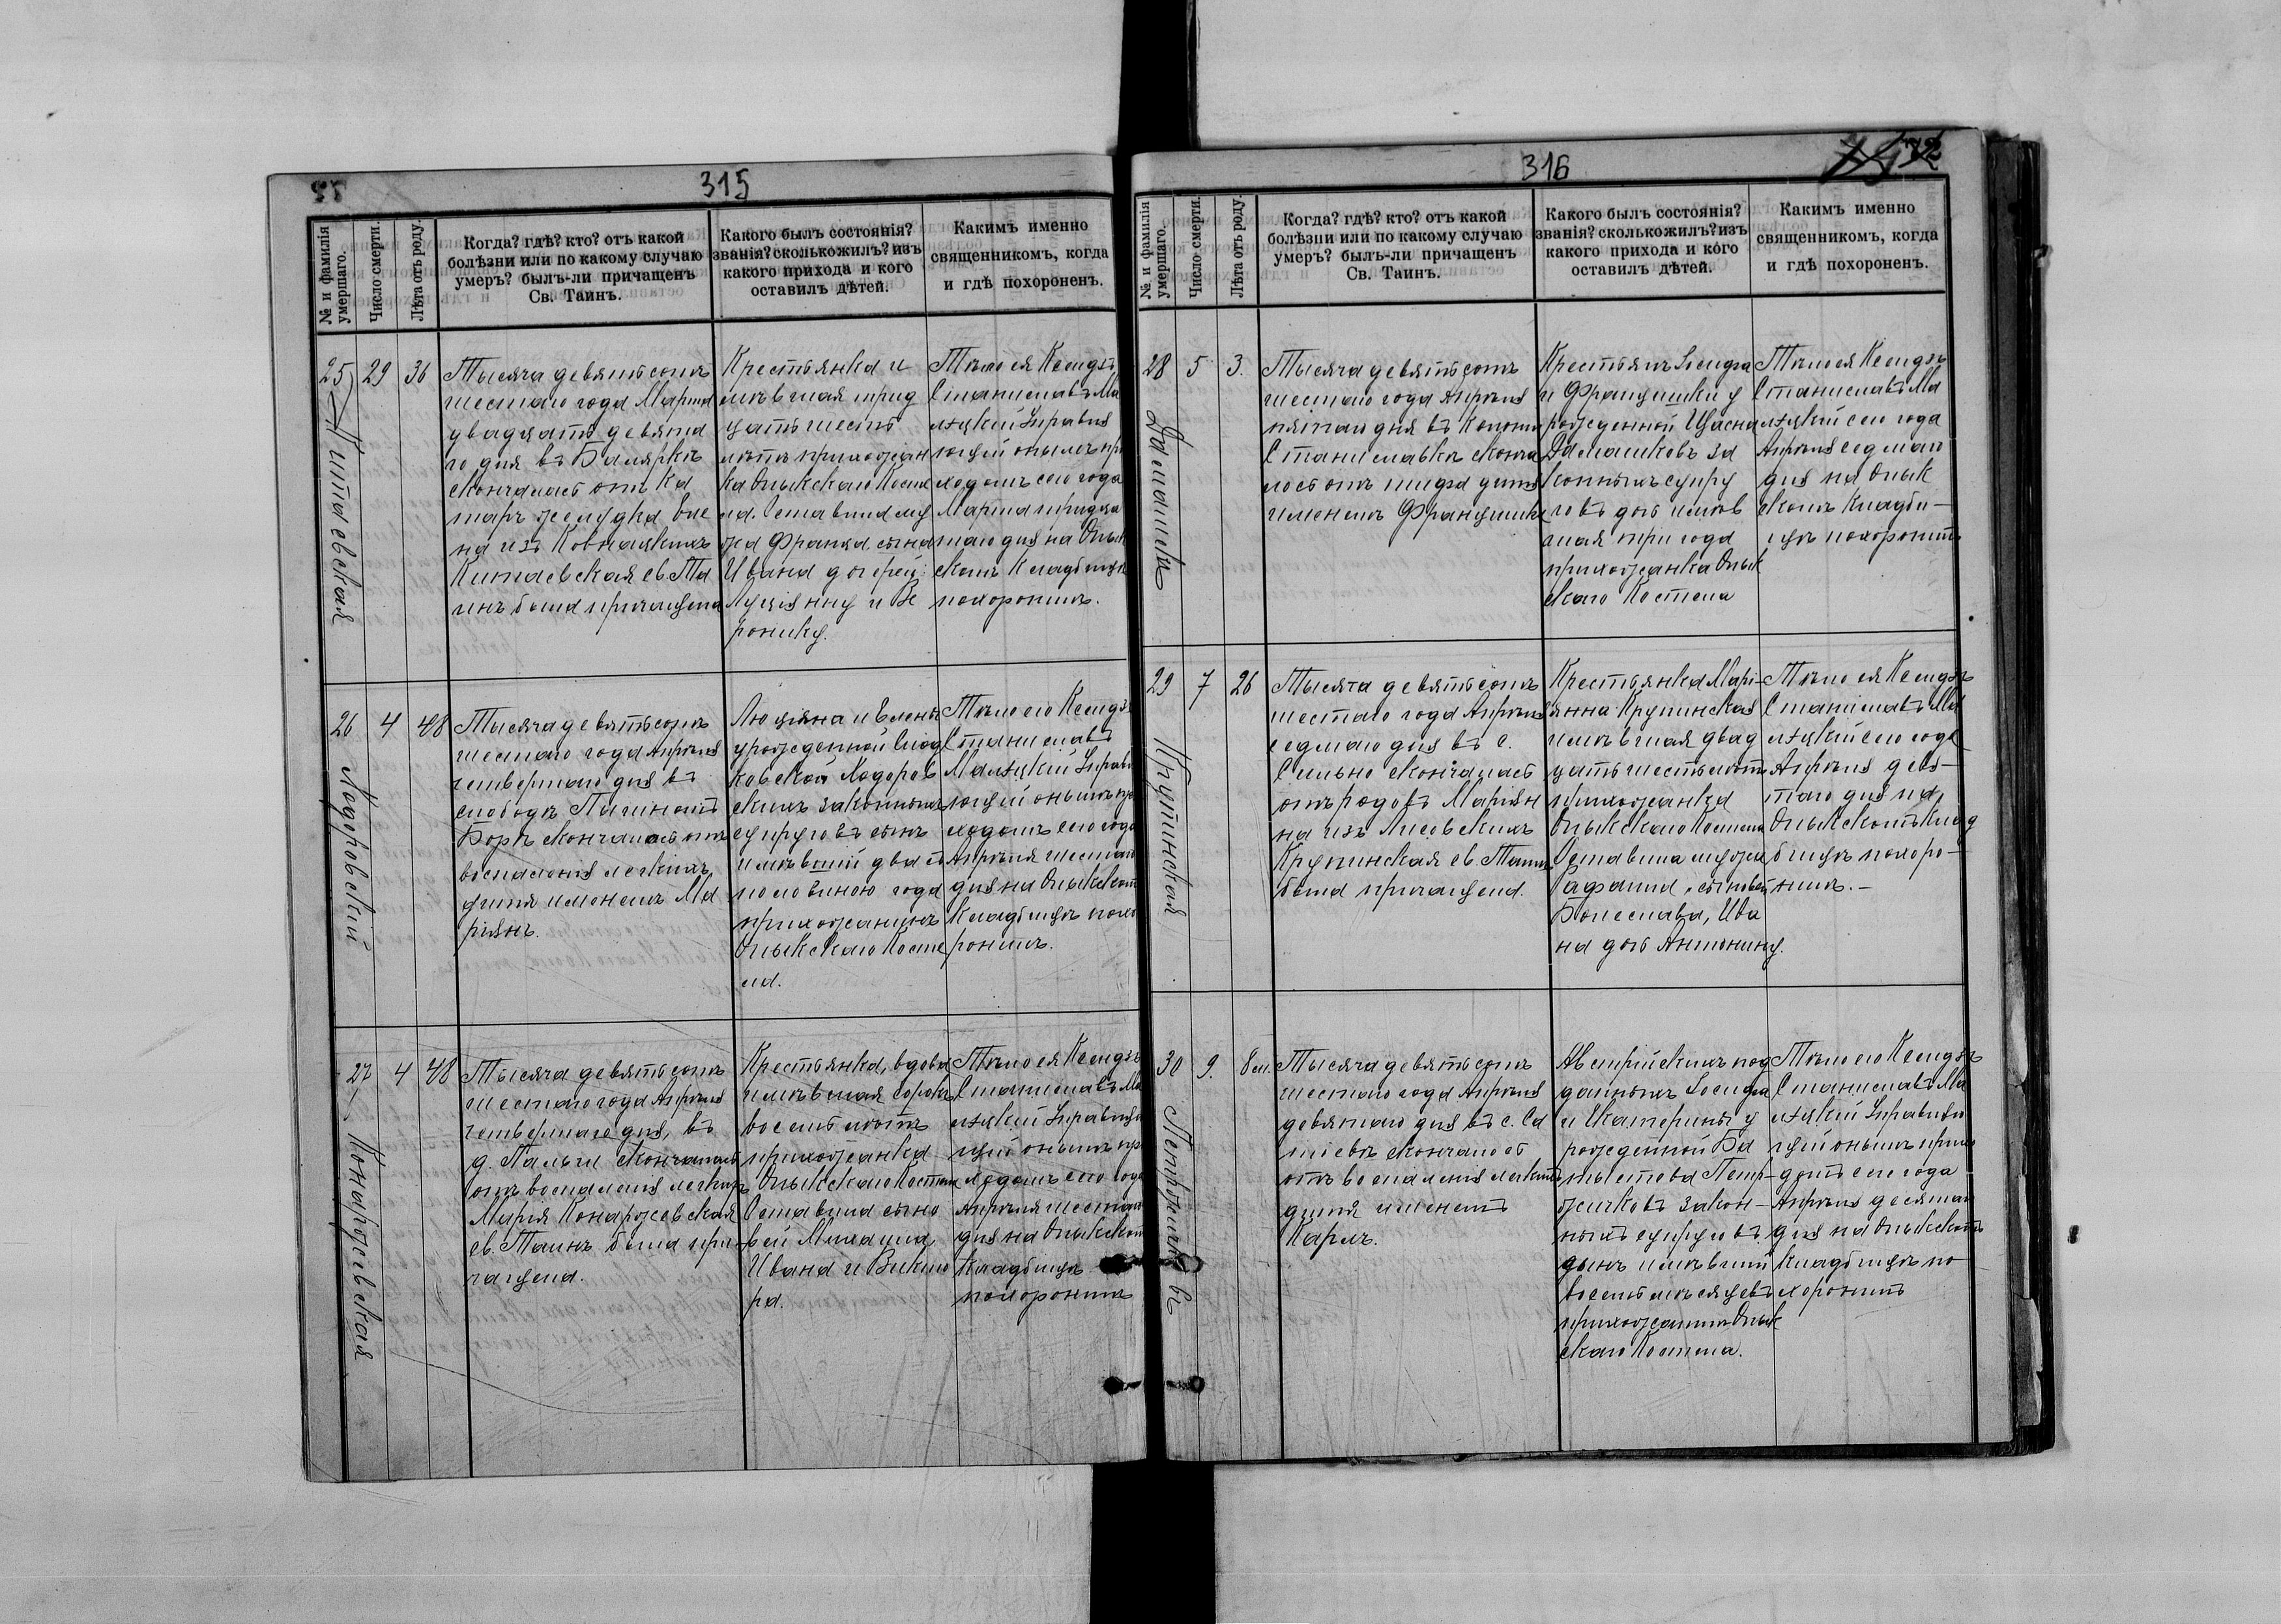 315
№ и фамилія умершаго.
Число смерти.
Лѣта отъ роду.
Когда? гдѣ? кто? отъ какой
болѣзни или по какому случаю
умеръ? былъ-ли причащенъ
Св. Таинъ.
Какого былъ состоянія?
званія? сколько жилъ? изъ
какого прихода и кого
оставилъ дѣтей.
Какимъ именно
священникомъ, когда
и гдѣ похороненъ.
25
Китаевская
29
36
Тысяча девятьсотъ
шестаго года Марта
двадцать девята
го дня въ Баляркѣ
скончалась отъ Ка
таръ желудка Еле
на изъ Ковнацкихъ
Китаевская св. Та
инъ была причащена
Крестьянка и
мѣвшая трид
цать шесть
лѣтъ прихожан
ка Олыкскаго Косте
ла. Оставила му
жа Франца, сына
Ивана дочерей:
Луціянну и Ве
ронику.
Тѣло ея Ксендзъ
Станиславъ Ма
лѣцкій Управля
ющій онымъ при
ходомъ сего года
Марта тридца
таго дня на Олык
скомъ Кладбищѣ
похоронилъ.
26
Ходоровскій
4
48
Тысяча девятьсотъ
шестаго года Апрѣля
четвертаго дня въ
слободѣ Пычиномъ
Борѣ скончался отъ
воспаленія легкихъ
дитя именемъ Ма
ріянъ.
Люціяна и Елены
урожденной Снад
ковской Ходоров
скихъ законныхъ
супруговъ сынъ
имѣвшій два съ
половиною года
прихожанинъ
Олыкскаго Косте
ла.
Тѣло его Ксендзъ
Станиславъ
Малѣцкій Управл
ющій онымъ при
ходомъ сего года
Апрѣля шестаго
дня на Олыкском
Кладбищѣ похо
ронилъ.
27
Конаржевская
4
48
Тысяча девятьсотъ
шестаго года Апрѣля
четвертаго дня, въ
д. Пальчи скончалась
отъ воспаленія легкихъ
Марія Конаржевская
св. Таинъ была при-
чащена.
Крестьянка, вдова
имѣвшая сорокъ
восемь лѣтъ
прихожанка
Олыкскаго Костела
Оставила сыно
вей Михаила,
Ивана и Викто
ра.
Тѣло ея Ксендзъ
Станиславъ Ма
лѣцкій Управляю
щій онымъ при
ходомъ сего года
Апрѣля шестаго
дня на Олыкском
Кладбищѣ
похоронилъ
316
72
№ и фамилія умершаго.
Число смерти.
Лѣта отъ роду.
Когда? гдѣ? кто? отъ какой
болѣзни или по какому случаю
умеръ? былъ-ли причащенъ
Св. Таинъ.
Какого былъ состоянія?
званія? сколько жилъ? изъ
какого прихода и кого
оставилъ дѣтей.
Какимъ именно
священникомъ, когда
и гдѣ похороненъ.
28
5
3.
Тысяча девятьсотъ
шестаго года Апрѣля
пятаго дня въ Колоніи
Станиславкѣ сконча
лось отъ тифа дитя
именемъ Францишка
Крестьянъ Іосифа
и Францишки у
рожденной Щасна
Дамашковъ за
конныхъ супру
говъ дочь имѣв
шая три года
прихожанка Олык
скаго Костела
Тѣло ея Ксендзъ
Станиславъ Ма
лѣцкій сего года
Апрѣля седмаго
дня на Олык
скомъ Кладби-
щѣ похоронилъ
29
Крупинская
7
26
Тысяча девятьсотъ
шестаго года Апрѣля
седмаго дня въ с.
Сильно скончалась
отъ родовъ Маріян
на изъ Лисовскихъ
Крупинская св. Таинъ
была причащена.
Крестьянка Марі-
янна Крупинская
имѣвшая двад
цать шесть лѣтъ
прихожанка
Олыкскаго Костела
Оставила мужа
Рафаила, сыновей
Болеслава, Ива
на дочь Антонину.
Тѣло ея Ксендзъ
Станиславъ Ма
лѣцкій сего года
Апрѣля девя-
таго дня на
Олыкскомъ Клад
бищѣ похоро-
нилъ.-
30
9.
8 м.
Тысяча девятьсотъ
шестаго года Апрѣля
девятаго дня въ с. Са
піевѣ скончалось
отъ воспаленія легкихъ
дитя именемъ
Карлъ.
Австрійскихъ под
данныхъ Іосифа
и Екатерины у
рожденной
Петр-
жичковъ закон-
ныхъ супруговъ
сынъ имѣвшій
восемь мѣсяцевъ
прихожанинъ Олык
скаго Костела.
Тѣло его Ксендзъ
Станиславъ Ма
лѣцкій Управляю
щій онымъ прихо
домъ сего года
Апрѣля десятаго
дня на Олыкскомъ
Кладбищѣ по
хоронилъ